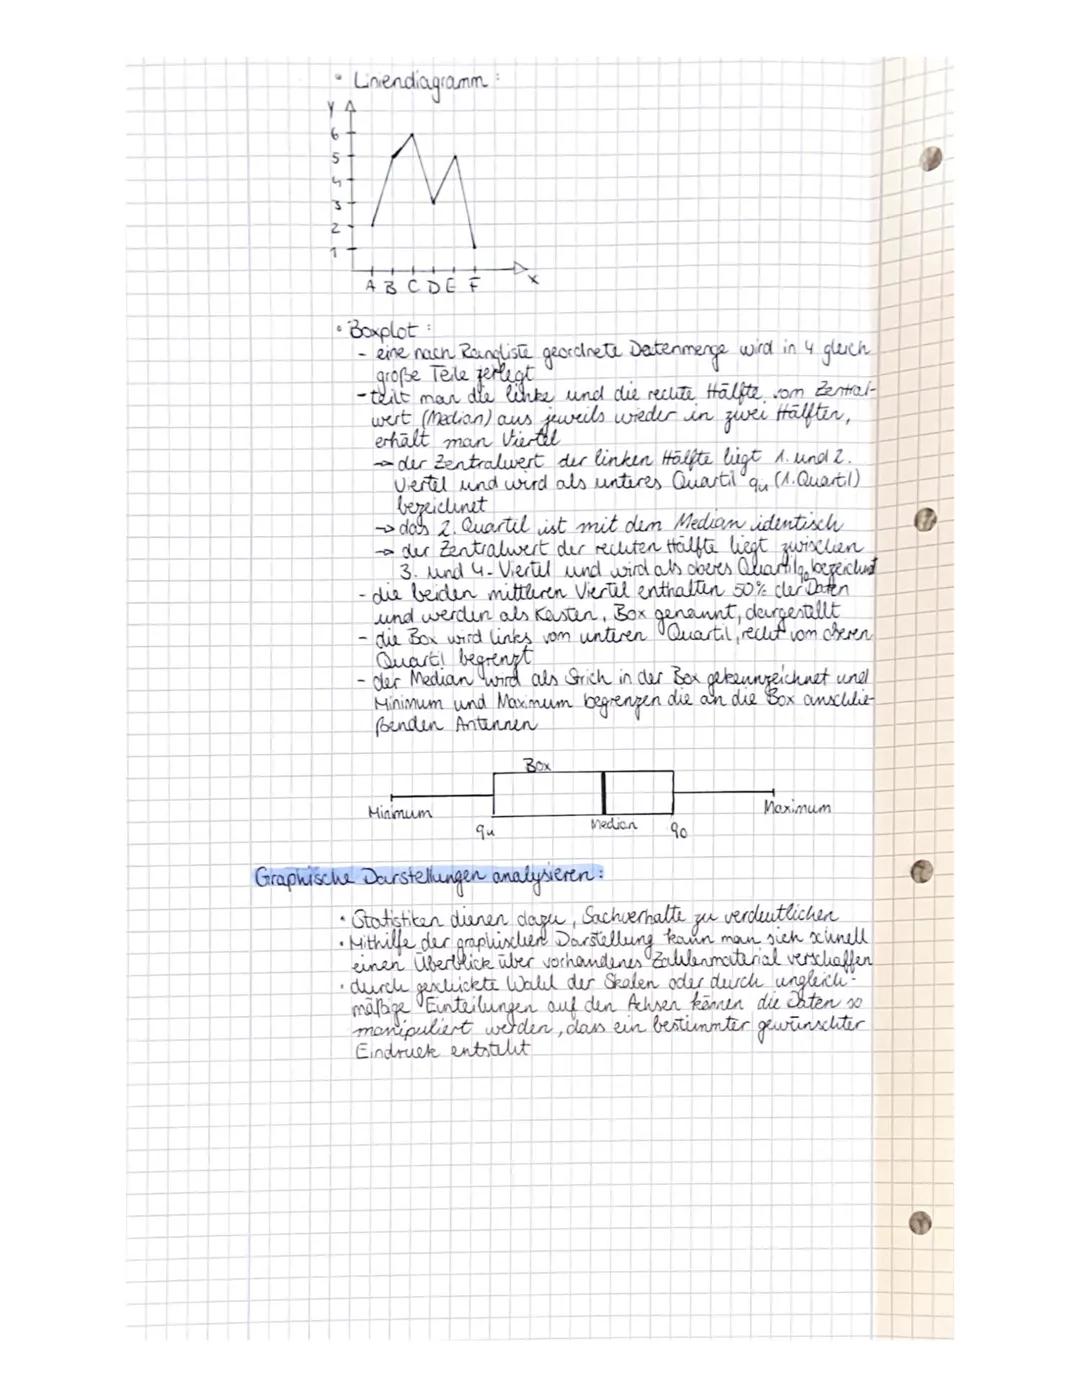 • Liniendiagramm:
Y
6
5
4
3
2
1
A B C D E F
x
• Boxplot:
- eine nach Rangliste geordnete Datenmenge wird in 4 gleich
große Teile zerlegt
- teilt man die linke und die rechte Hälfte vom Zentral-
wert (Median) aus jeweils wieder in zwei Hälften,
erhält man Viertel
→ der Zentralwert der linken Hälfte liegt 1. und 2.
Viertel und wird als unteres Quartil qu (1. Quartil)
bezeichnet
→ das 2. Quartil ist mit dem Median identisch
→ der Zentralwert der rechten Hälfte liegt zwischen
3. und 4. Viertel und wird als oberes Quartil qo bezeichnet
- die beiden mittleren Viertel enthalten 50% der Daten
und werden als Kasten, Box genannt, dargestellt
- die Box wird links vom unteren Quartil, recht vom oberen
Quartil begrenzt
- der Median wird als Strich in der Box gekennzeichnet und
Minimum und Maximum begrenzen die an die Box anschlie-
ßenden Antennen
Box
Minimum
Maximum
qu
Median
qo
Graphische Darstellungen analysieren:
• Statistiken dienen dazu, Sachverhalte zu verdeutlichen
• Mithilfe der graphischen Darstellung kann man sich schnell
einen Überblick über vorhandenes Zahlenmaterial verschaffen
• durch geschickte Wahl der Skalen oder durch ungleich-
mäßige Einteilungen auf den Achsen können die Daten so
manipuliert werden, dass ein bestimmter gewünschter
Eindruck entsteht